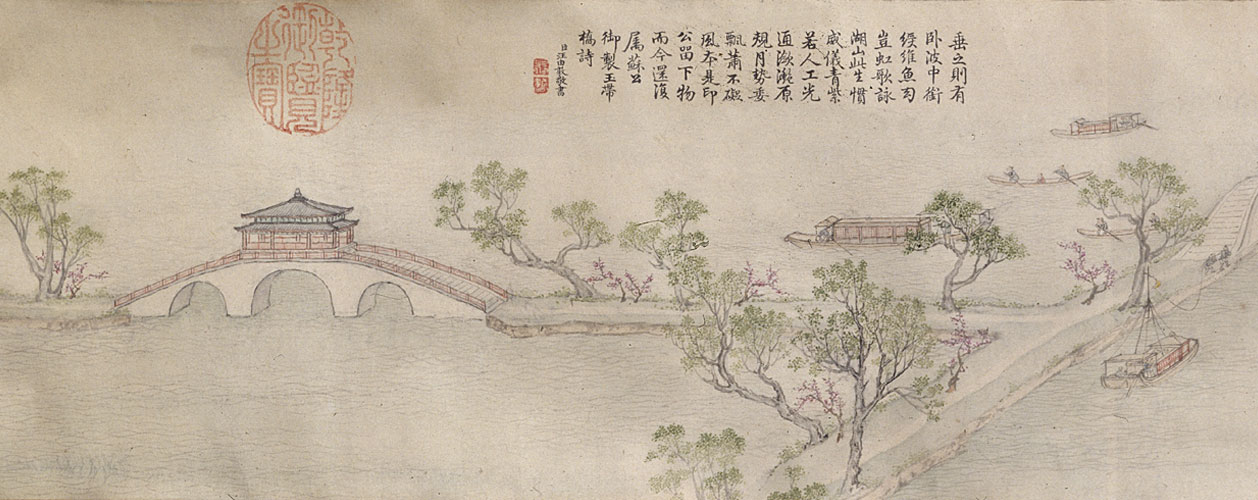 垂之則有
卧波中銜
維魚
豈虹歌詠
湖山此生慣
威儀青紫
若人工光
通潋灔原
規月勢委
飄蕭不礙
風本是印
公留下物
而今還復
属蘇公
御製玉帶
橋詩
臣汪由敦敬書
乾隆御覽之寶